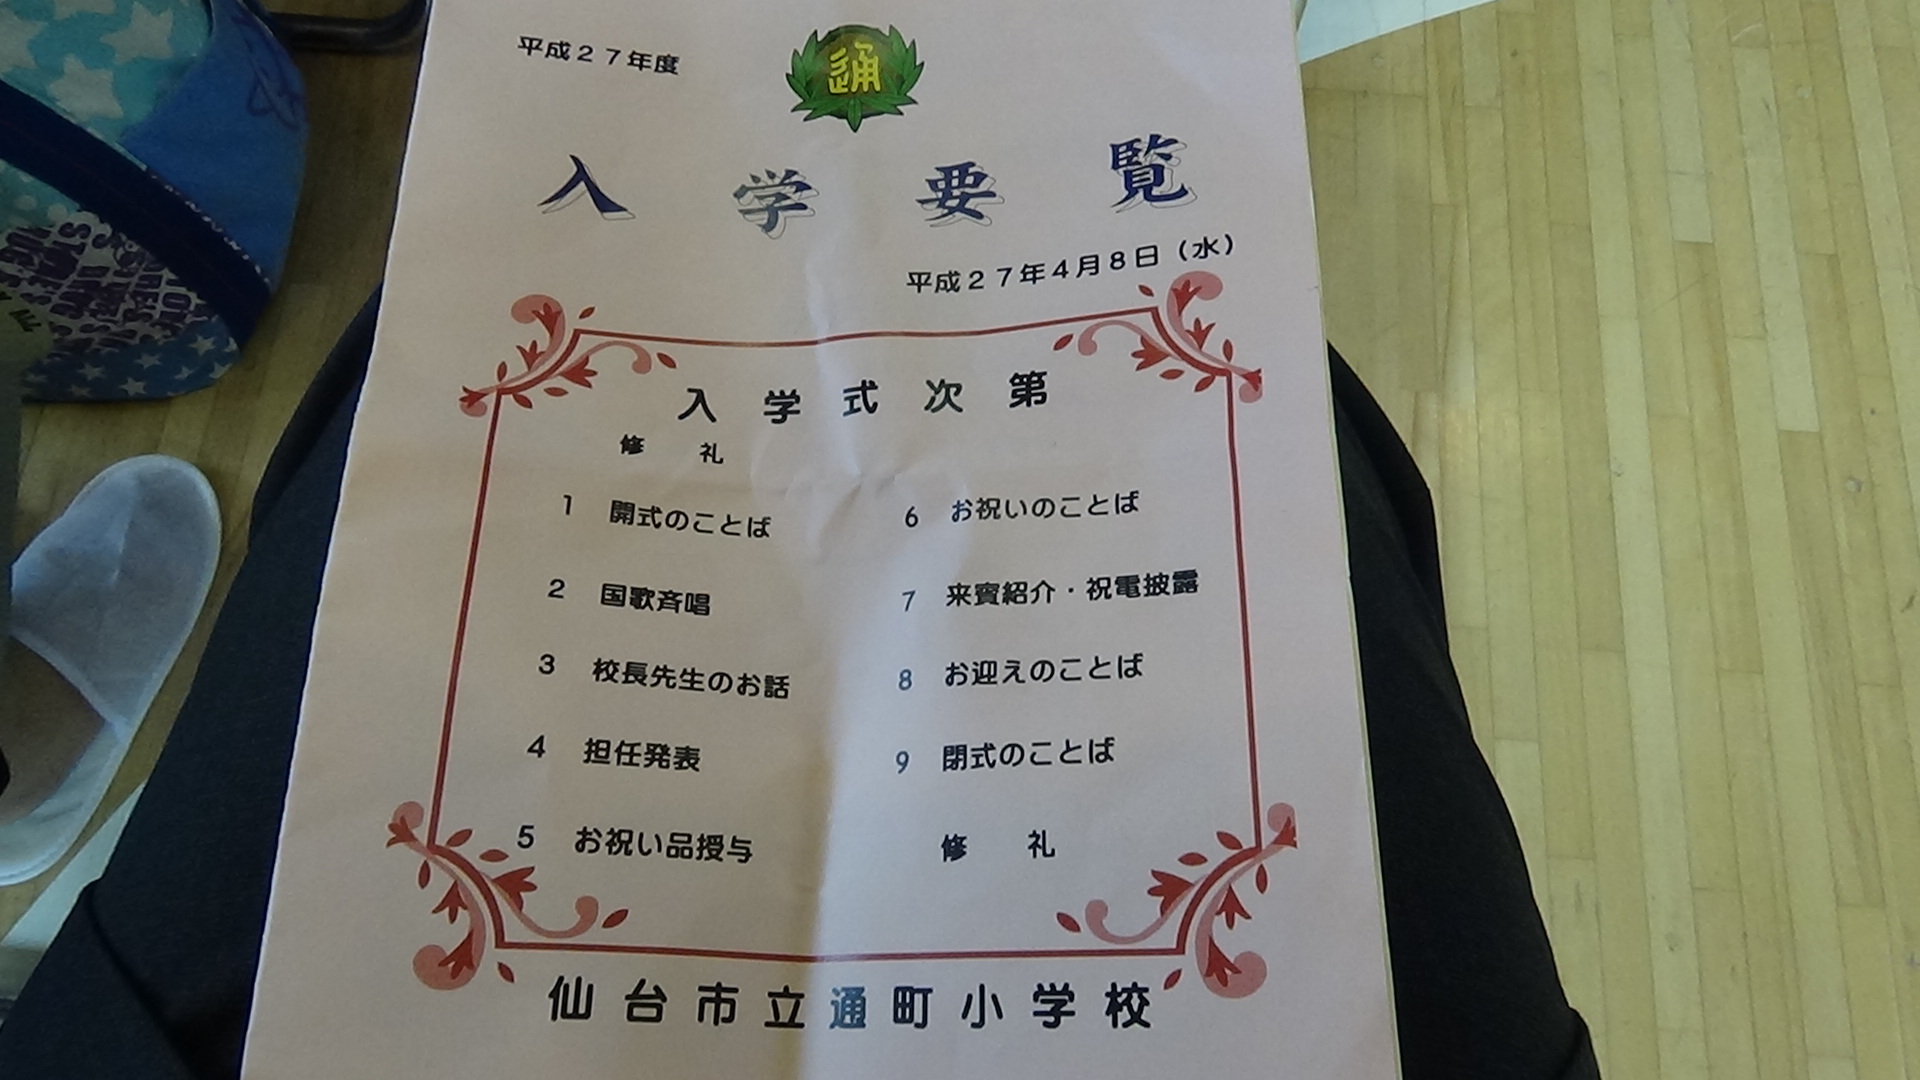 平成27年度
通
入学要覧
平成27年4月8日(水)
入学式次第
修礼
1 開式のことば
2 国歌斉唱
3 校長先生のお話
4 担任発表
5 お祝い品授与
6 お祝いのことば
7 来賓紹介・祝電披露
8 お迎えのことば
9 閉式のことば
修礼
仙台市立通町小学校